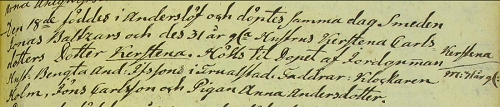 Den 18de föddes i Anderslöf och döptes samma dag Smeden
Jonas Baltzars och des 31 år gla Hustrus Kjerstena Carls
dotters Dotter Kerstena. Hölts til Dopet af Jordqvman Kerstena
Hust. Bengta And: Issons i Frualstad. Faddrar: Klockaren M: 31 år gl:
Holm, Jöns Carlsson och Pigan Anna Andersdotter.